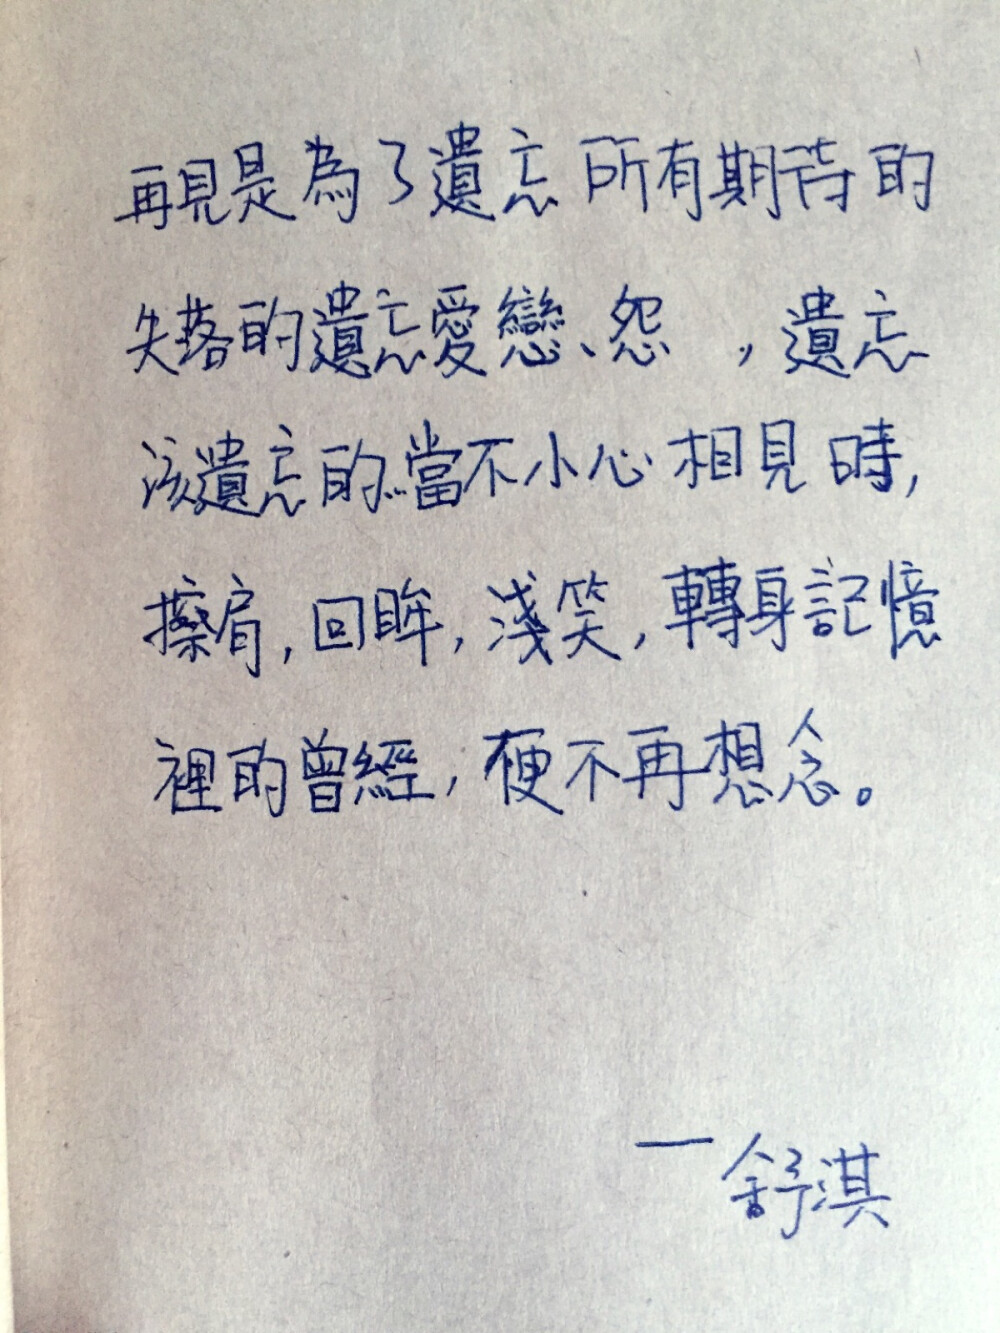 再見是為了遺忘所有期待的
失落的遺忘愛戀、怨 ，遺忘
該遺忘的…當不小心相見時，
擦肩，回眸，淺笑，轉身記憶
裡的曾經，便不再想念。
—舒淇